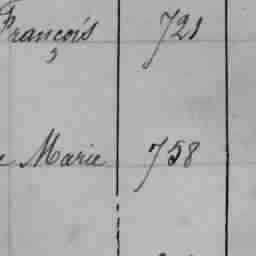 François 721
Marie 758